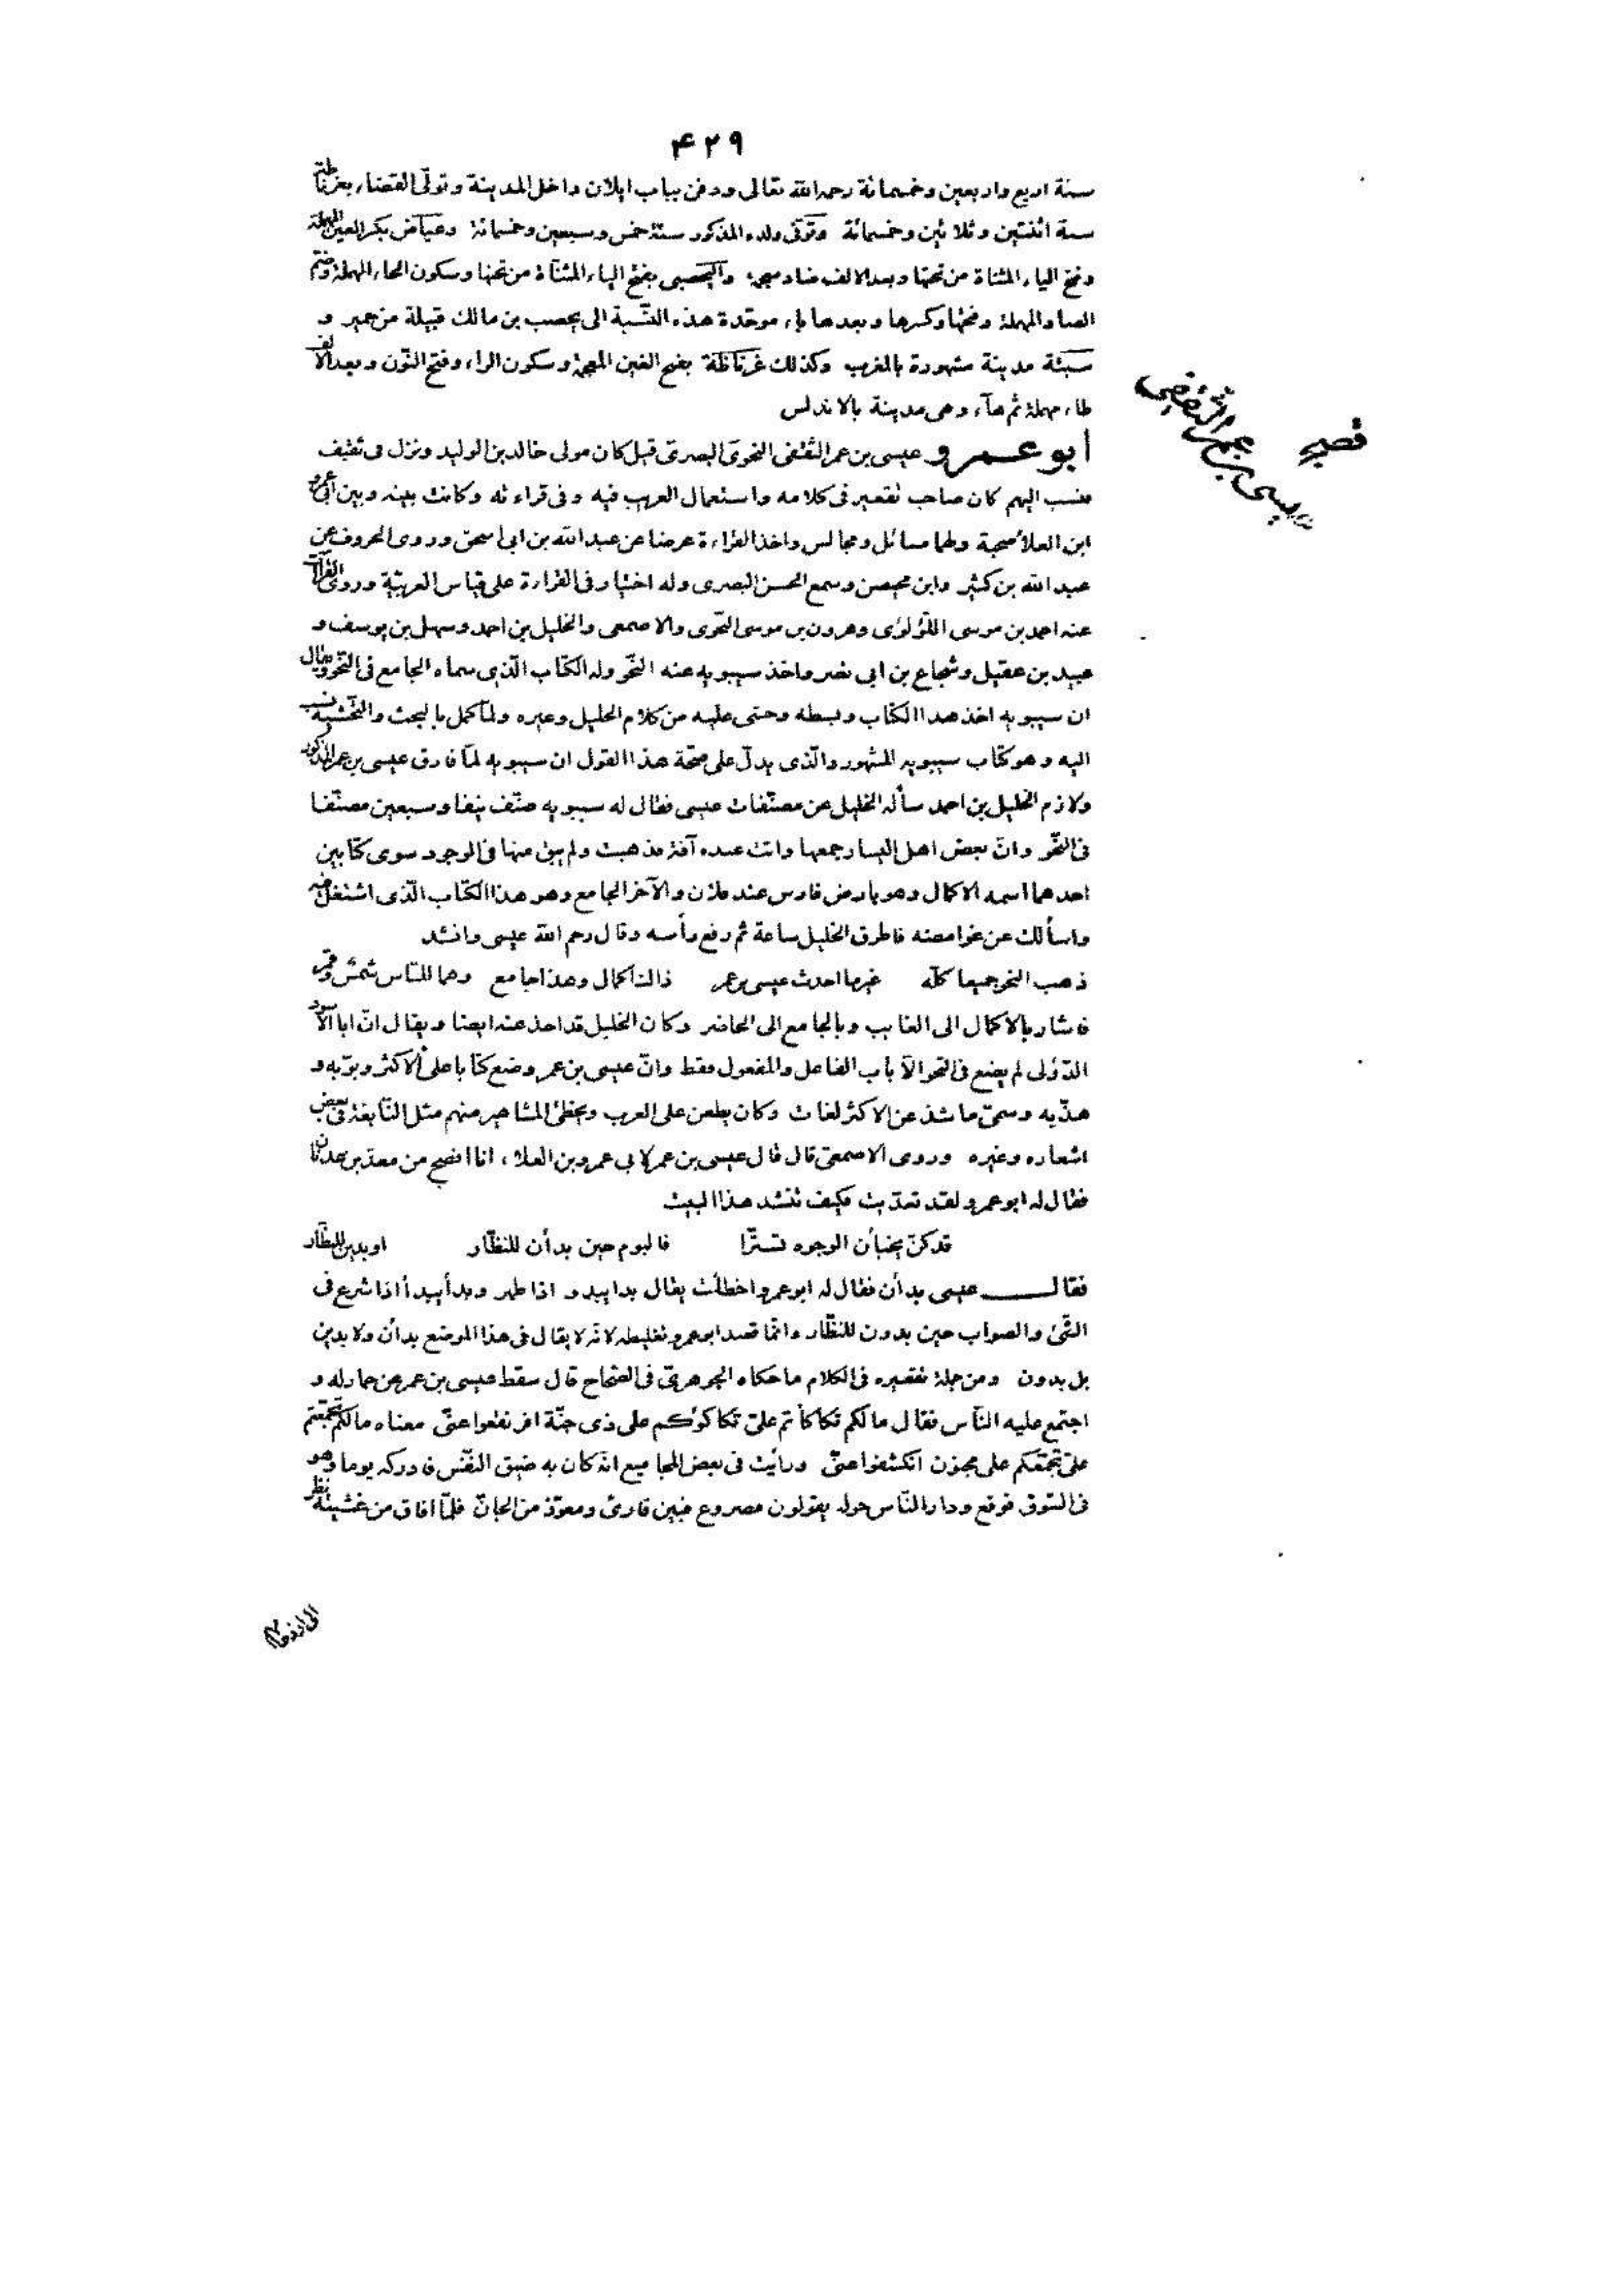 ۴۲۹
سنة اربع واربعين وخمسمائة رحمه الله تعالى ودفن بباب ايلان داخل المدينة وتولّى القضاء بغرناطة
سنة اثنتين وثلاثين وخمسمائة وتوفّى ولده المذكور سنة خمس وسبعين وخمسمائة وعياض بكسر العين المهملة
وفتح الياء المثناة من تحتها وبعد الالف ضاد معجمة واليحصبى بفتح الياء المثنّاة من تحتها وسكون الحاء المهملة وضمّ
الصاد المهملة وفتحها وكسرها وبعدها باء موحّدة هذه النّسبة الى يحصب بن مالك قبيلة من حمير و
سبتة مدينة مشهورة بالمغرب وكذلك غرناطة بفتح الغين المعجمة وسكون الراء وفتح النّون وبعد الالف
طاء مهملة ثم هآء وهى مدينة بالاندلس
أبو عمرو عيسى بن عمر الثقفى النحوىّ البصرىّ قيل كان مولى خالد بن الوليد ونزل فى ثقيف
فنسب اليهم كان صاحب تقعير فى كلامه واستعمال الغريب فيه وفى قراءته وكانت بينه وبين أبى عمرو
ابن العلاء صحبة ولهما مسائل ومجالس واخذ القراءة عرضا عن عبد الله بن ابى اسحق وروى الحروف عن
عبد الله بن كثير وابن محيصن وسمع الحسن البصرى وله اختيار فى القراءة على قياس العربيّة وروى القراآت
عنه احمد بن موسى اللّؤلؤى وهرون بن موسى النّحوى والاصمعى والخليل بن احمد وسهل بن يوسف و
عبيد بن عقيل وشجاع بن ابى نصر واخذ سيبويه عنه النّحو وله الكتاب الّذى سماه الجامع فى النّحو ويقال
ان سيبويه اخذ هذا الكتاب وبسطه وحشى عليه من كلام الخليل وغيره ولمّا كمل بالبحث والتّحشية نسب
اليه وهو كتاب سيبويه المشهور والّذى يدلّ على صحّة هذا القول ان سيبويه لمّا فارق عيسى بن عمر المذكور
ولازم الخليل بن احمد سأله الخليل عن مصنّفات عيسى فقال له سيبويه صنّف نيفا وسبعين مصنّفا
فى النّحو وانّ بعض اهل اليسار جمعها واتت عنده آفة فذهبت ولم يبق منها فى الوجود سوى كتابين
احدهما اسمه الاكمال وهو بارض فارس عند فلان والآخر الجامع وهو هذا الكتاب الّذى اشتغل فيه
واسألك عن غوامضه فاطرق الخليل ساعة ثم رفع رأسه وقال رحم الله عيسى وانشد
ذهب النحو جميعا كلّه غير ما احدث عيسى بن عمر ذاك اكمال وهذا جامع وهما للنّاس شمس وقمر
فاشار بالاكمال الى الغايب وبالجامع الى الحاضر وكان الخليل قد اخذ عنه ايضا ويقال انّ ابا الاسود
الدّؤلى لم يضع فى النحو الّا باب الفاعل والمفعول فقط وانّ عيسى بن عمر وضع كتابا على الاكثر وبوّبه و
هذّبه وسمّى ما شذ عن الاكثر لغات وكان يطعن على العرب ويخطئ المشاهير منهم مثل النّابغة فى بعض
اشعاره وغيره وروى الاصمعىّ قال قال عيسى بن عمر لابى عمرو بن العلاء انا افصح من معدّ بن عدنان
فقال له ابو عمرو لقد تعدّيت فكيف تنشد هذا البيت
قد كنّ يخبأن الوجوه تستّرا فاليوم حين بدأن للنظّار او بدين للنظّار
فقال عيسى بدأن فقال له ابو عمرو اخطأت يقال بدا يبدو اذا ظهر وبدأ يبدأ اذا شرع فى
الشّئ والصواب حين بدون للنّظّار وانّما قصد ابو عمرو تغليطه لانّه لا يقال فى هذا الموضع بدأن ولا بدين
بل بدون ومن جملة تقعيره فى الكلام ما حكاه الجوهرىّ فى الصّحاح قال سقط عيسى بن عمر عن حمار له و
اجتمع عليه النّاس فقال ما لكم تكأكأتم علىّ تكأكؤكم على ذى جنّة افرنقعوا عنّى معناه ما لكم تجمّعتم
علىّ تجمّعكم على مجنون انكشفوا عنّى ورأيت فى بعض المجاميع انّه كان به ضيق النّفس فادركه يوما وهو
فى السّوق فوقع ودار النّاس حوله يقولون مصروع فبين قارئ ومعوّذ من الجانّ فلمّا افاق من غشيته نظر
عيسى بن عمر الثقفى